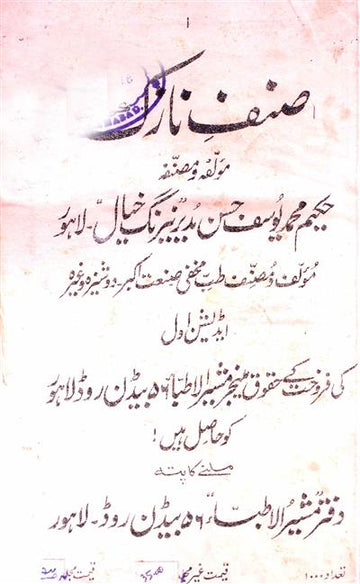 ۱
صنفِ نازک
مؤلفہ و مصنفہ
حکیم محمد یوسف حسن مدیر نیرنگ خیال۔ لاہور
مؤلف و مصنف طب مخفی صنعت اکبر۔ دوشیزہ وغیرہ
ایڈیشن اول
کی فروخت کے حقوق منیجر مشیر الاطباء ۵۶ بیڈن روڈ لاہور
کو حاصل ہیں!
ملنے کا پتہ
دفتر مشیر الاطباء ۵۶ بیڈن روڈ۔ لاہور
تعداد ۱۰۰۰ قیمت غیر مجلد قیمت مجلد